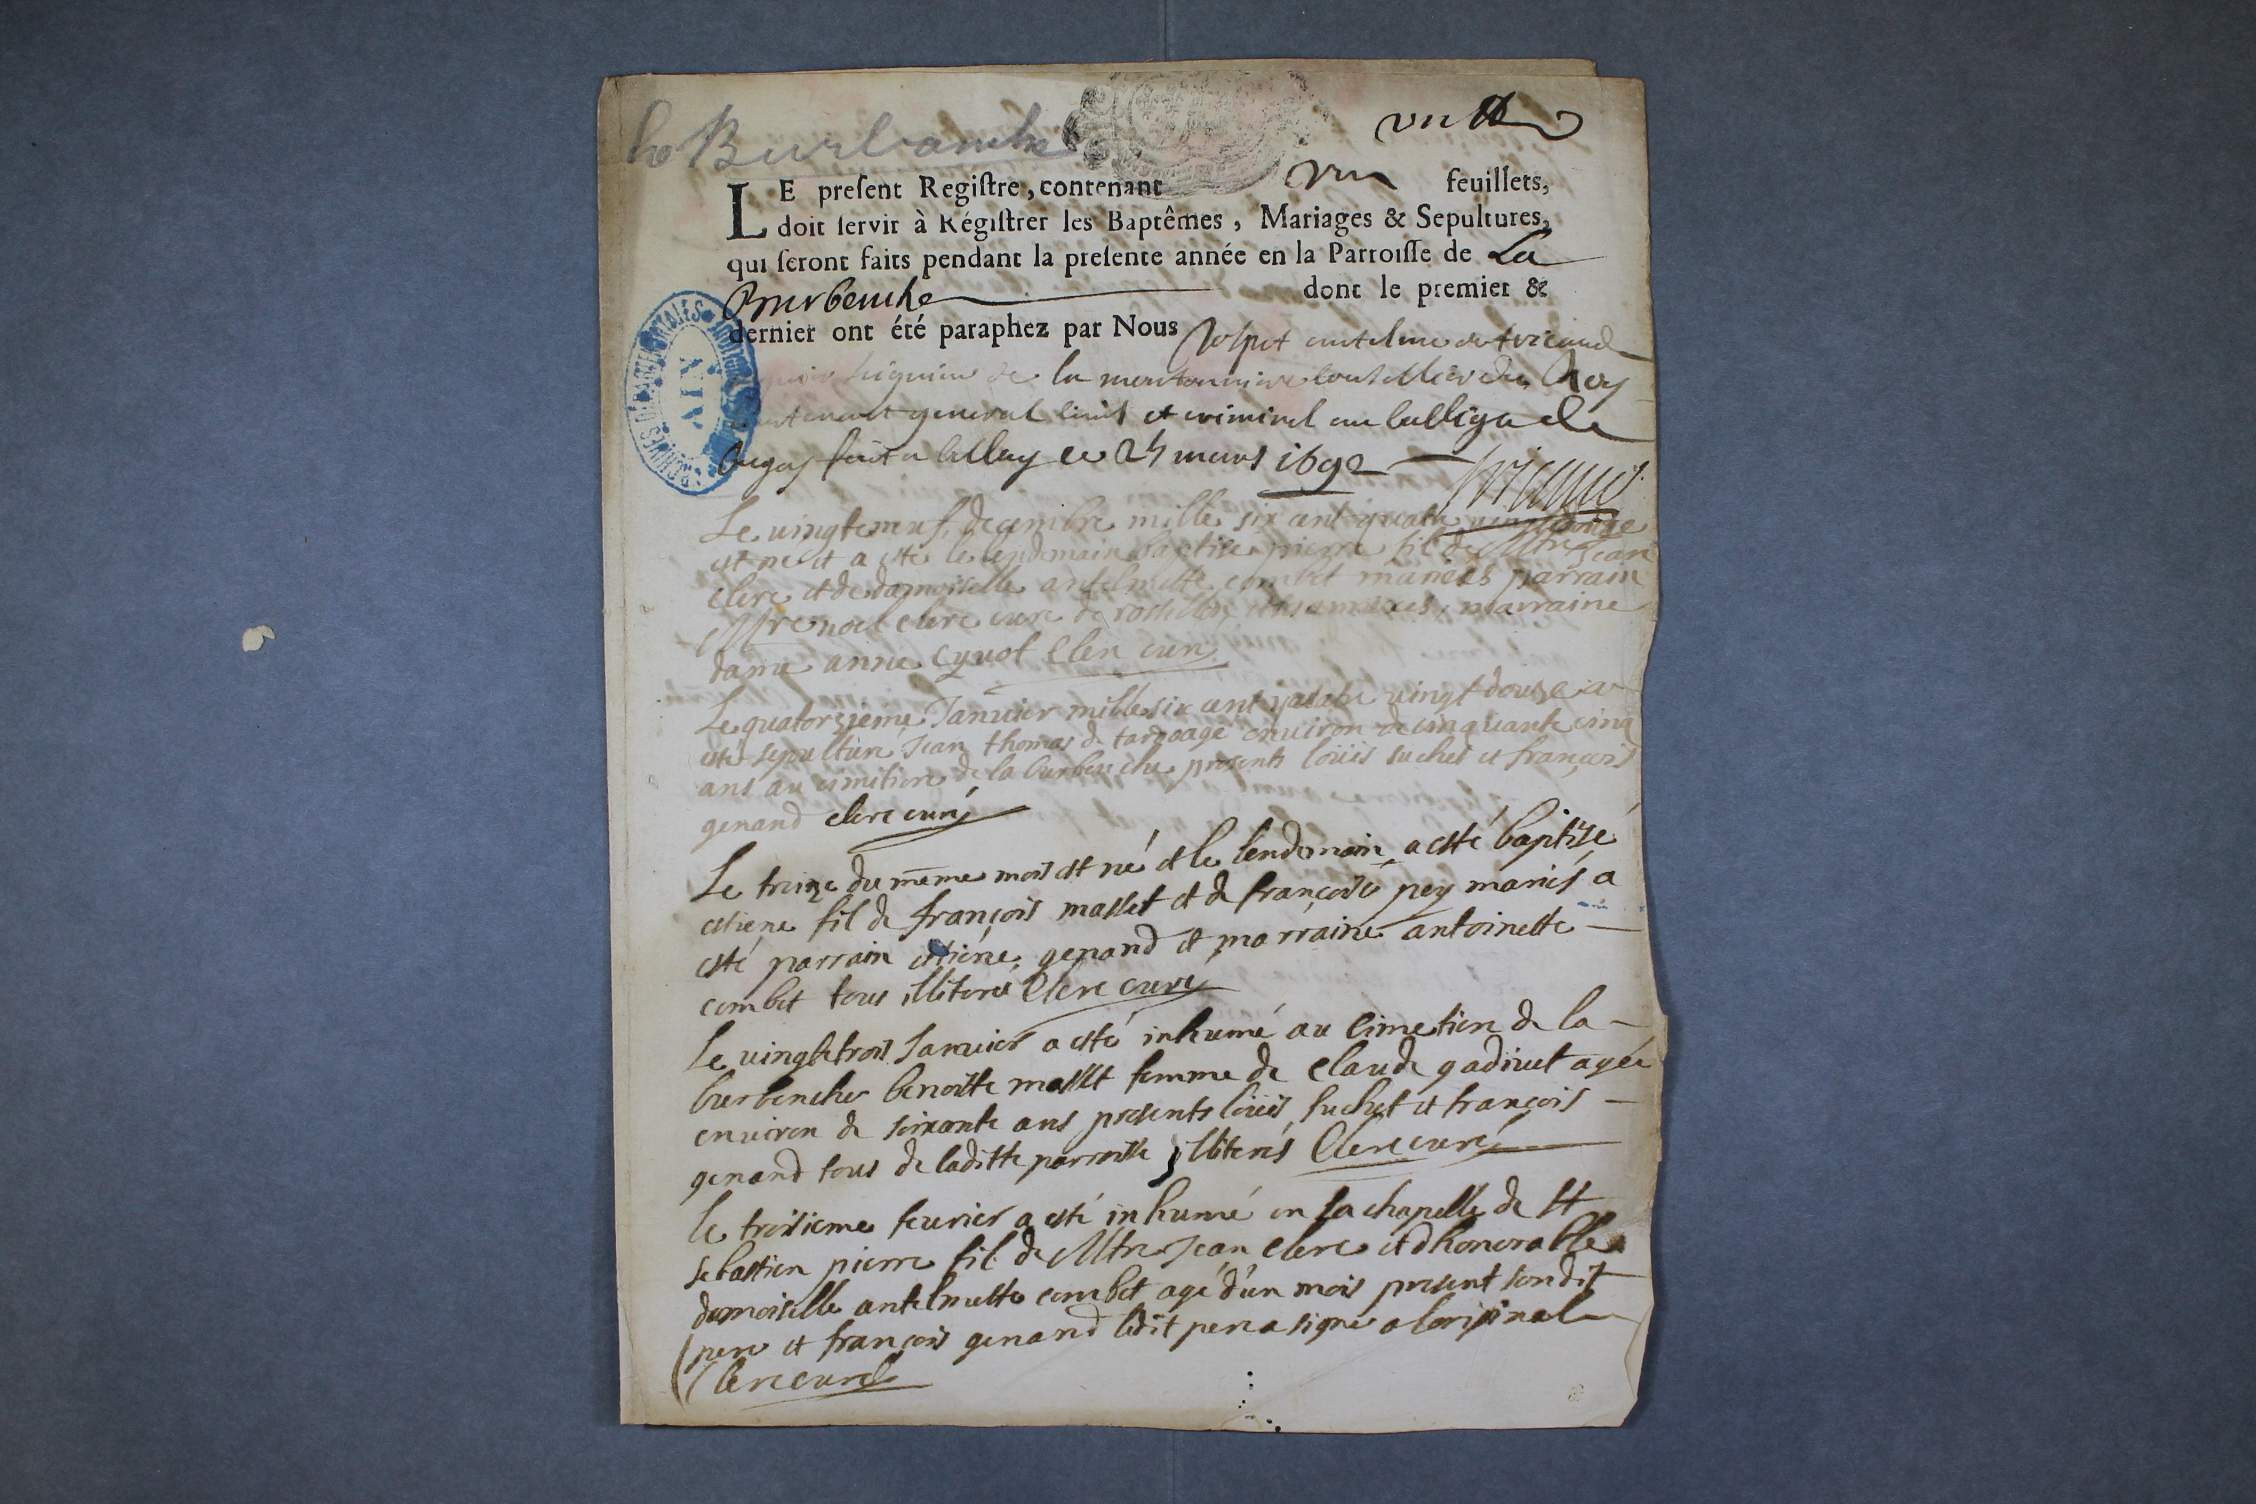 la Burbanche
un
LE present Registre, contenant un feuillets,
doit servir à Régistrer les Baptêmes, Mariages & Sepultures,
qui seront faits pendant la presente année en la Parroisse de La
Burbenche dont le premier &
dernier ont été paraphez par Nous antelme de tricaud
seigneur de la conseiller du Roy
lieutenant general civil et criminel au balliage de
bugey fait a bellay ce 24 mars 1692
Tricaud
ARCHIVES DÉPARTEMENTALES
AIN
Le vingt neuf decembre mille six cent quatre
est ne et a esté le lendemain baptise pierre fil de Mtre Jean
clerc et de damoiselle antelmette combet mariés parrain
Mre noel clerc cure de rossillon marraine
dame anne cyvot Clerc curé
Le quatorzieme Janvier mille six cent quatre vingt douze a
esté sepulture Jean thomas de agé environ de cinquante cinq
ans au cimitiere de la burbenche presents loüis suchet et françois
genand clerc curé
Le treize du même mois est né et le lendemain a esté baptizé
estiene fil de françois masset et de françoise pey mariés a
esté parrain estiene genand et marraine antoinette
combet tous illiterés Clerc curé
Le vingt trois Janvier a esté inhumé au Cimetiere de la
burbenche benoitte masset femme de claude gadivet agée
environ de soixante ans presents loüis suchet et françois
genand tous de laditte parroisse illiterés Clerc curé
le troisieme fevrier a esté inhumé en la chapelle de st
sebastien pierre fil de Mtre Jean clerc et dhonorable
damoiselle antelmette combet agé d'un mois present sondit
pere et françois genand ledit pere a signé a loriginal
Clerc curé